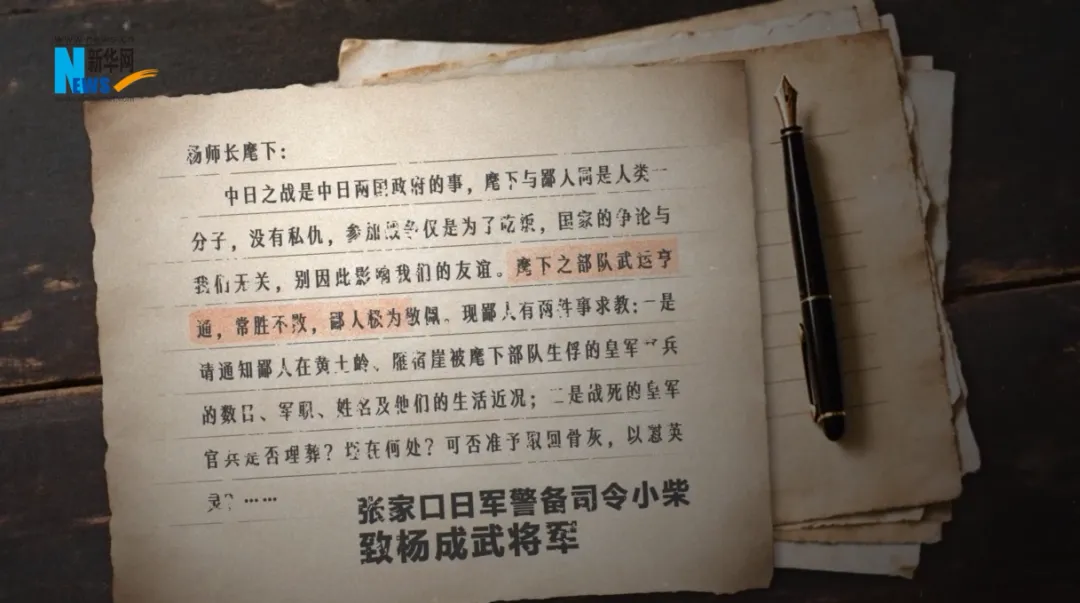 新华网
NEWS
杨师长麾下：
中日之战是中日两国政府的事，麾下与鄙人同是人类一
分子，没有私仇，参加战争仅是为了吃饭，国家的争论与
我们无关，别因此影响我们的友谊。麾下之部队武运亨
通，常胜不败，鄙人极为敬佩。现鄙人有两件事求教：一是
请通知鄙人在黄土岭、雁宿崖被麾下部队生俘的皇军官兵
的数目、军职、姓名及他们的生活近况；二是战死的皇军
官兵是否埋葬？埋在何处？可否准予取回骨灰，以慰英
灵？……
张家口日军警备司令小柴
致杨成武将军